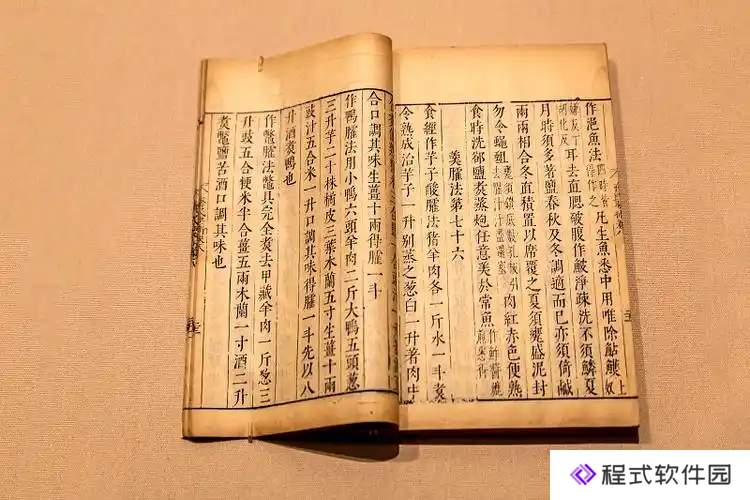 作浥魚法四時皆得作之凡生魚悉中用唯除鮎鱯上奴
嫌反下胡化反耳去直腮破腹作鮍淨疎洗不須鱗夏
月時須多著鹽春秋及冬調適而已亦須倚鹹
兩兩相合冬直積置以席覆之夏須甕盛泥封
勿令蠅蛆甕須鑽底數孔拔引去腥汁汁盡還塞肉紅赤色便熟
食時洗卻鹽煮蒸炮任意美於常魚作鮓醬爊煎悉得
羹臛法第七十六
食經作芋子酸臛法猪羊肉各一斤水一斗煮
令熟成治芋子一升別蒸之葱白一升著肉中
合口調其味生薑十兩得臛一斗
作鴨臛法用小鴨六頭羊肉二斤大鴨五頭葱
三升芋二十株橘皮三葉木蘭五寸生薑十兩
豉汁五合米一升口調其味得臛一斗先以八
升酒煮鴨也
作鼈臛法鼈具完全煮去甲藏羊肉一斤葱三
升豉五合粳米半合薑五兩木蘭一寸酒二升
煮鼈鹽苦酒口調其味也
程式软件园